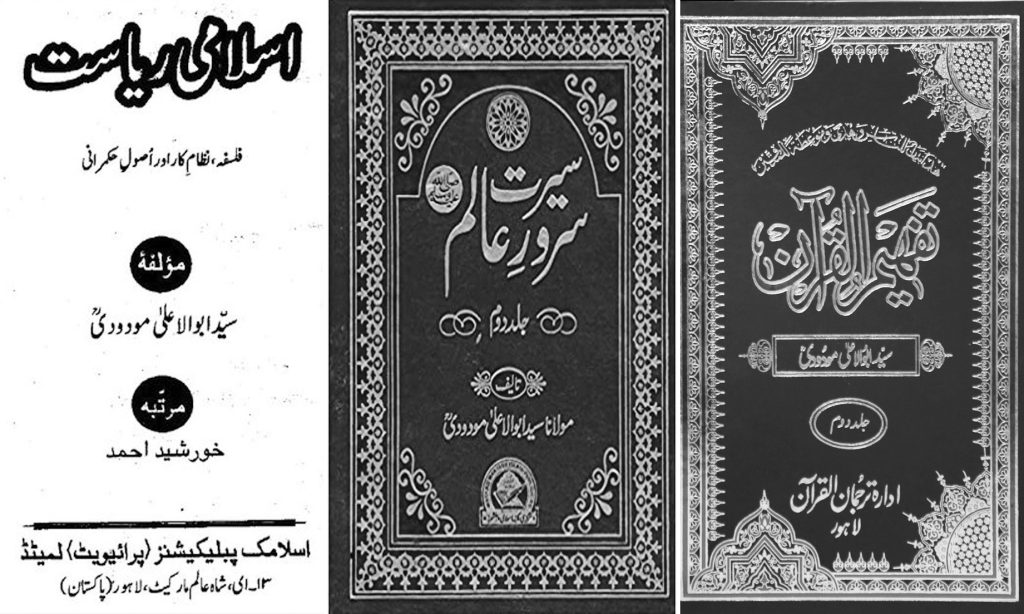 اسلامی ریاست
فلسفہ، نظامِ کار اور اُصولِ حکمرانی
مؤلفۂ
سیّد ابوالاعلیٰ مودودیؒ
مرتّبہ
خورشید احمد
اسلامک پبلیکیشنز (پرائیویٹ) لمیٹڈ
۱۳۔ای، شاہ عالم مارکیٹ، لاہور (پاکستان)
سیرت
سرورِ عالم
صلی اللہ علیہ وسلم
جلد دوم
تالیف
مولانا سید ابوالاعلیٰ مودودیؒ
تفہیم القرآن
سیّد ابوالاعلیٰ مودودیؒ
جلد دوم
ادارہ ترجمان القرآن
لاہور